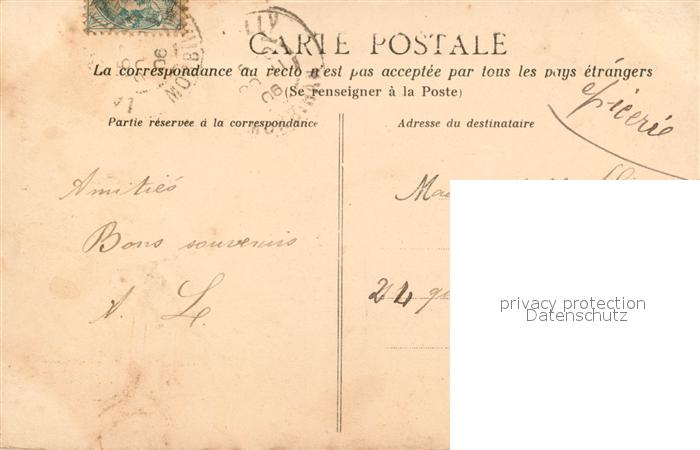 CARTE POSTALE
La correspondance au recto n'est pas acceptée par tous les pays étrangers
(Se renseigner à la Poste)
Partie réservée à la correspondance
Adresse du destinataire
Epicerie
Amitiés
Bons souvenirs
A. L.
24
privacy protection
Datenschutz